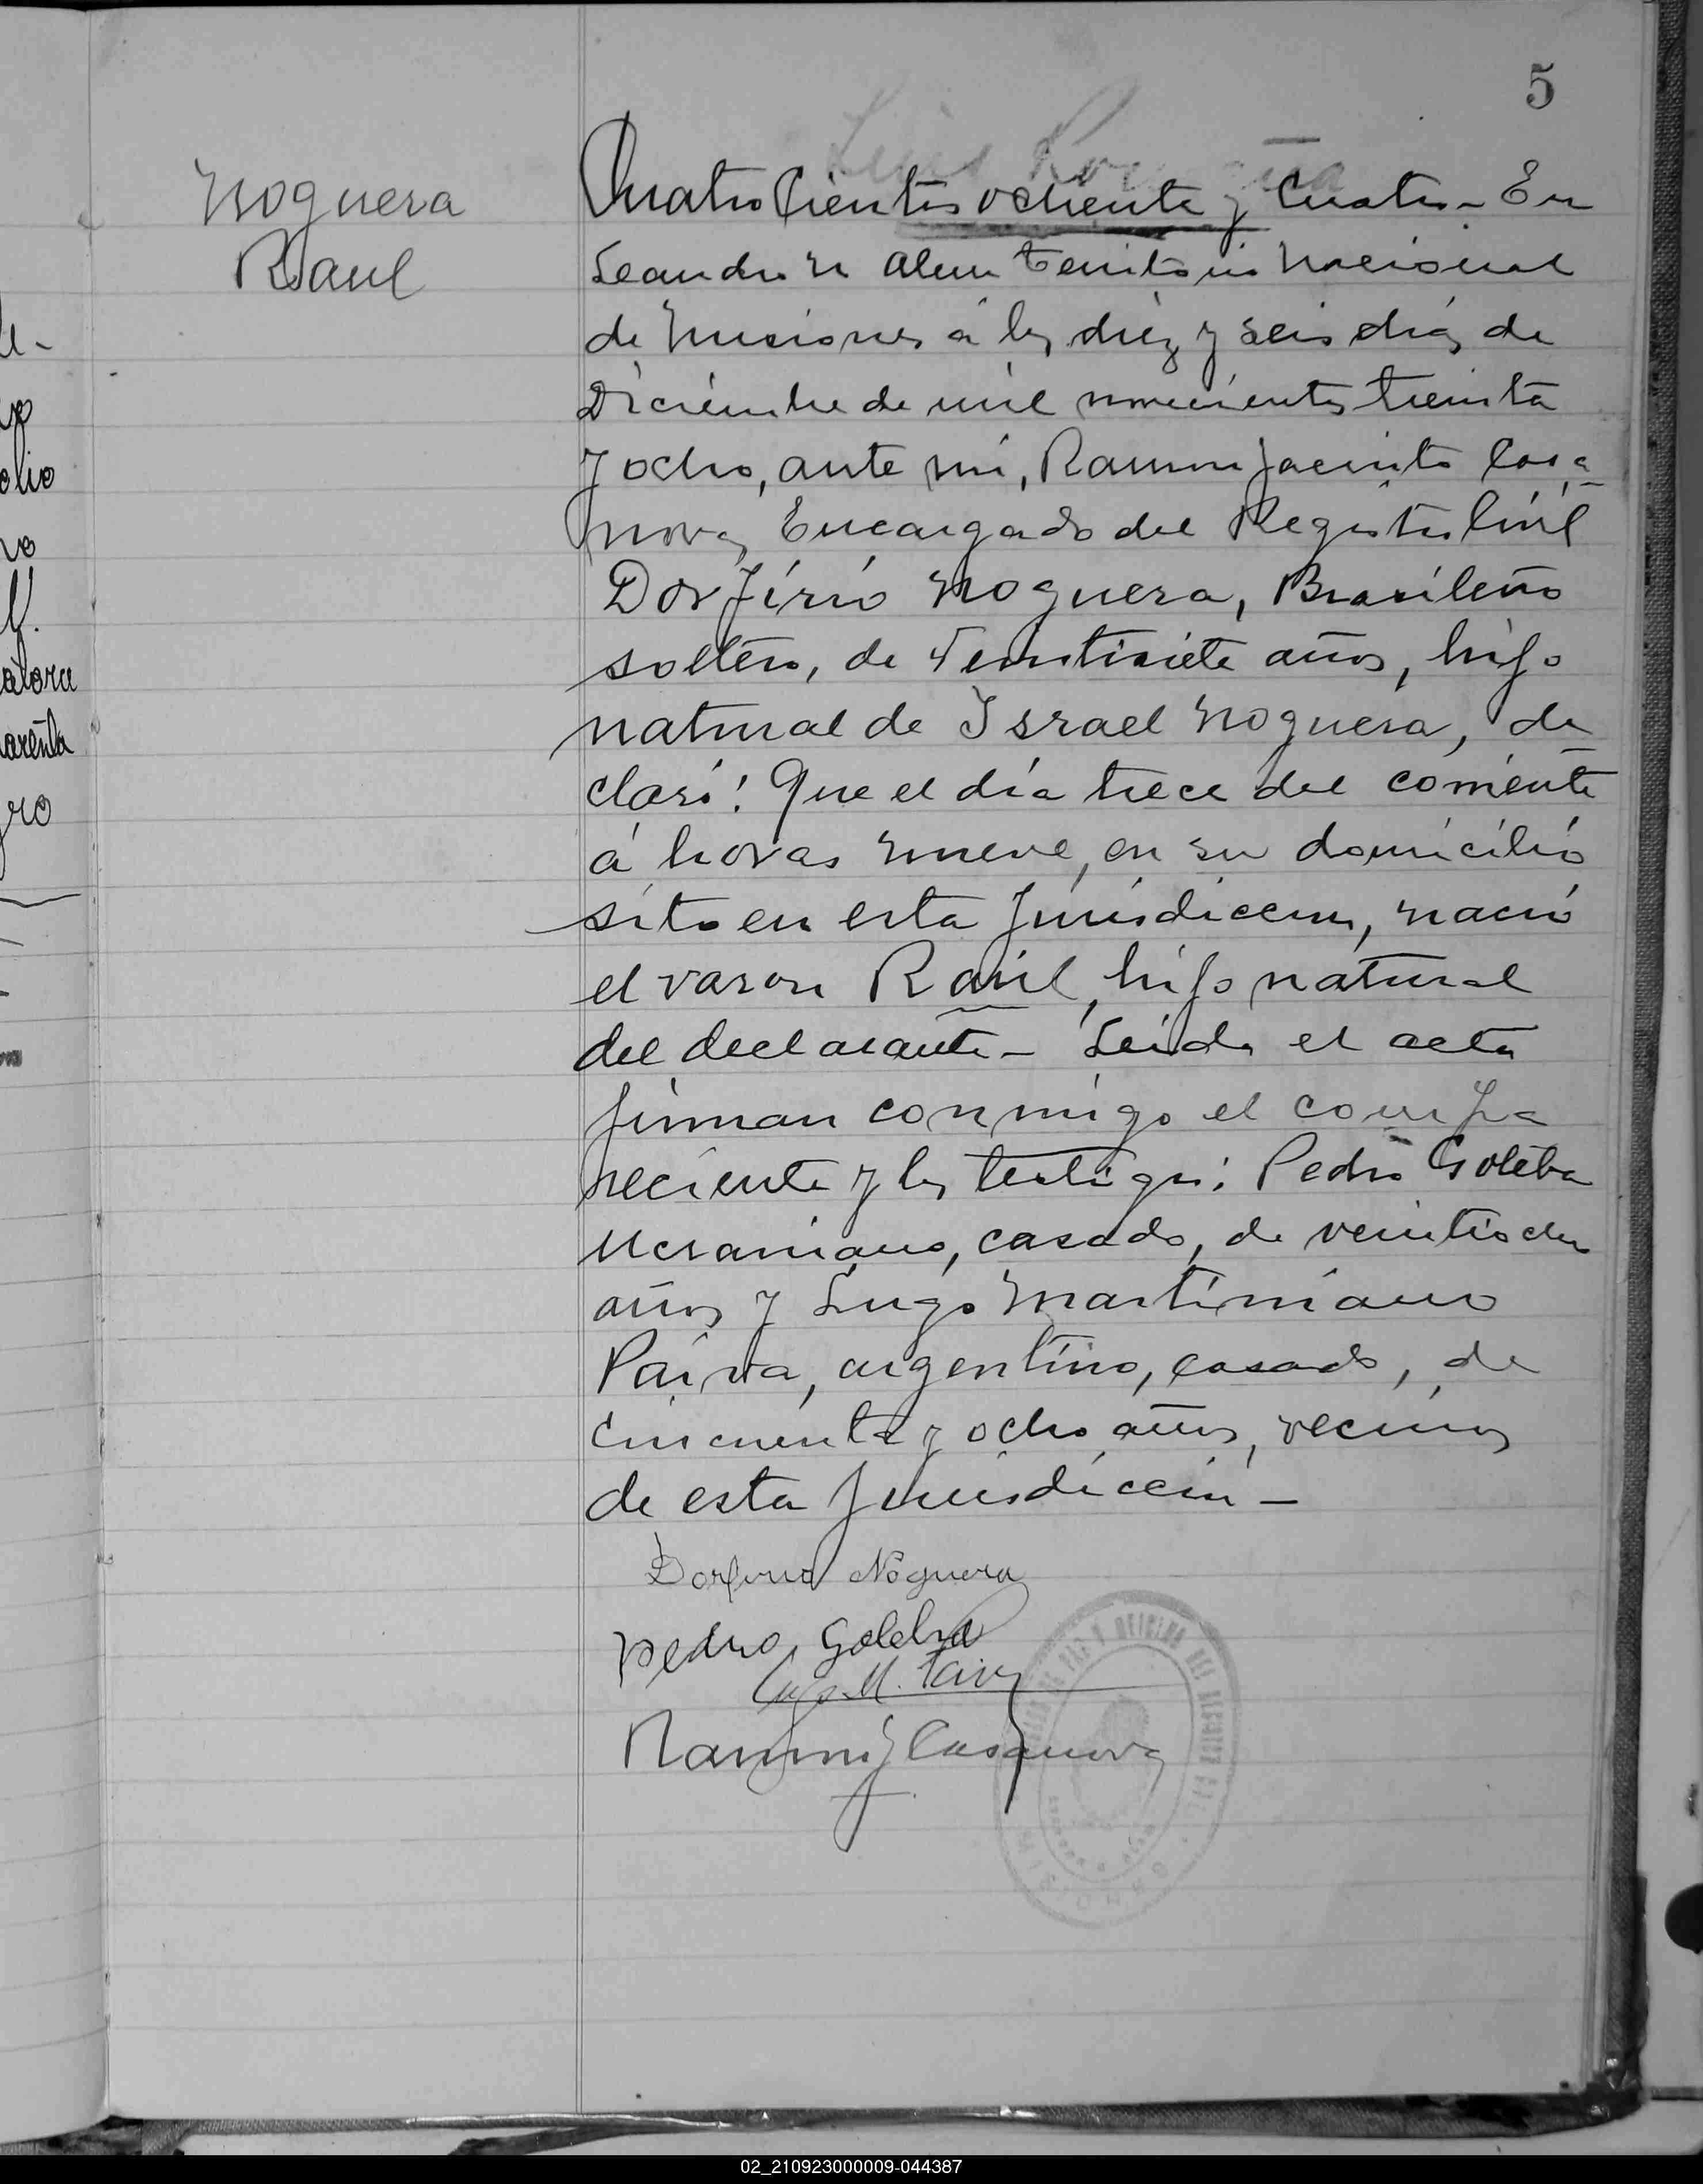 5
Noguera
Raul
Cuatrocientos ochenta y cuatro - En
Leandro N Alem Territorio Nacional
de Misiones a los diez y seis días de
Diciembre de mil novecientos treinta
y ocho, ante mi, Ramon Jacinto Casa
nova Encargado del Registro Civil
Dorfirio Noguera, Brasileño
soltero, de veintisiete años, hijo
natural de Israel Noguera, de
claró: Que el día trece del corriente
á horas nueve, en su domicilio
sito en esta Jurisdiccion, nació
el varon Raúl, hijo natural
del declarante - Leida el acta
firman conmigo el compa
reciente y los testigos: Pedro Goleba
Ucraniano, casado, de veintiocho
años y Lugo Martiniano
Paiva, argentino, casado, de
cincuenta y ocho años, vecinos
de esta Jurisdicción -
Noguera
Pedro
M. Paiva
Ramon J Casanova
02_210923000009-044387